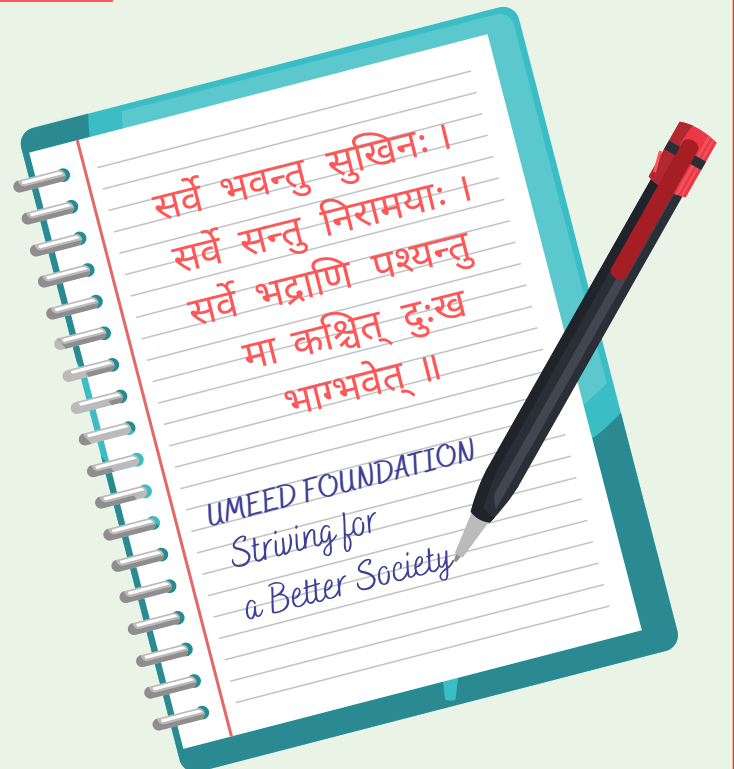 सर्वे भवन्तु सुखिनः ।
सर्वे सन्तु निरामयाः ।
सर्वे भद्राणि पश्यन्तु
मा कश्चित् दुःख
भाग्भवेत् ॥
UMEED FOUNDATION
Striving for
a Better Society